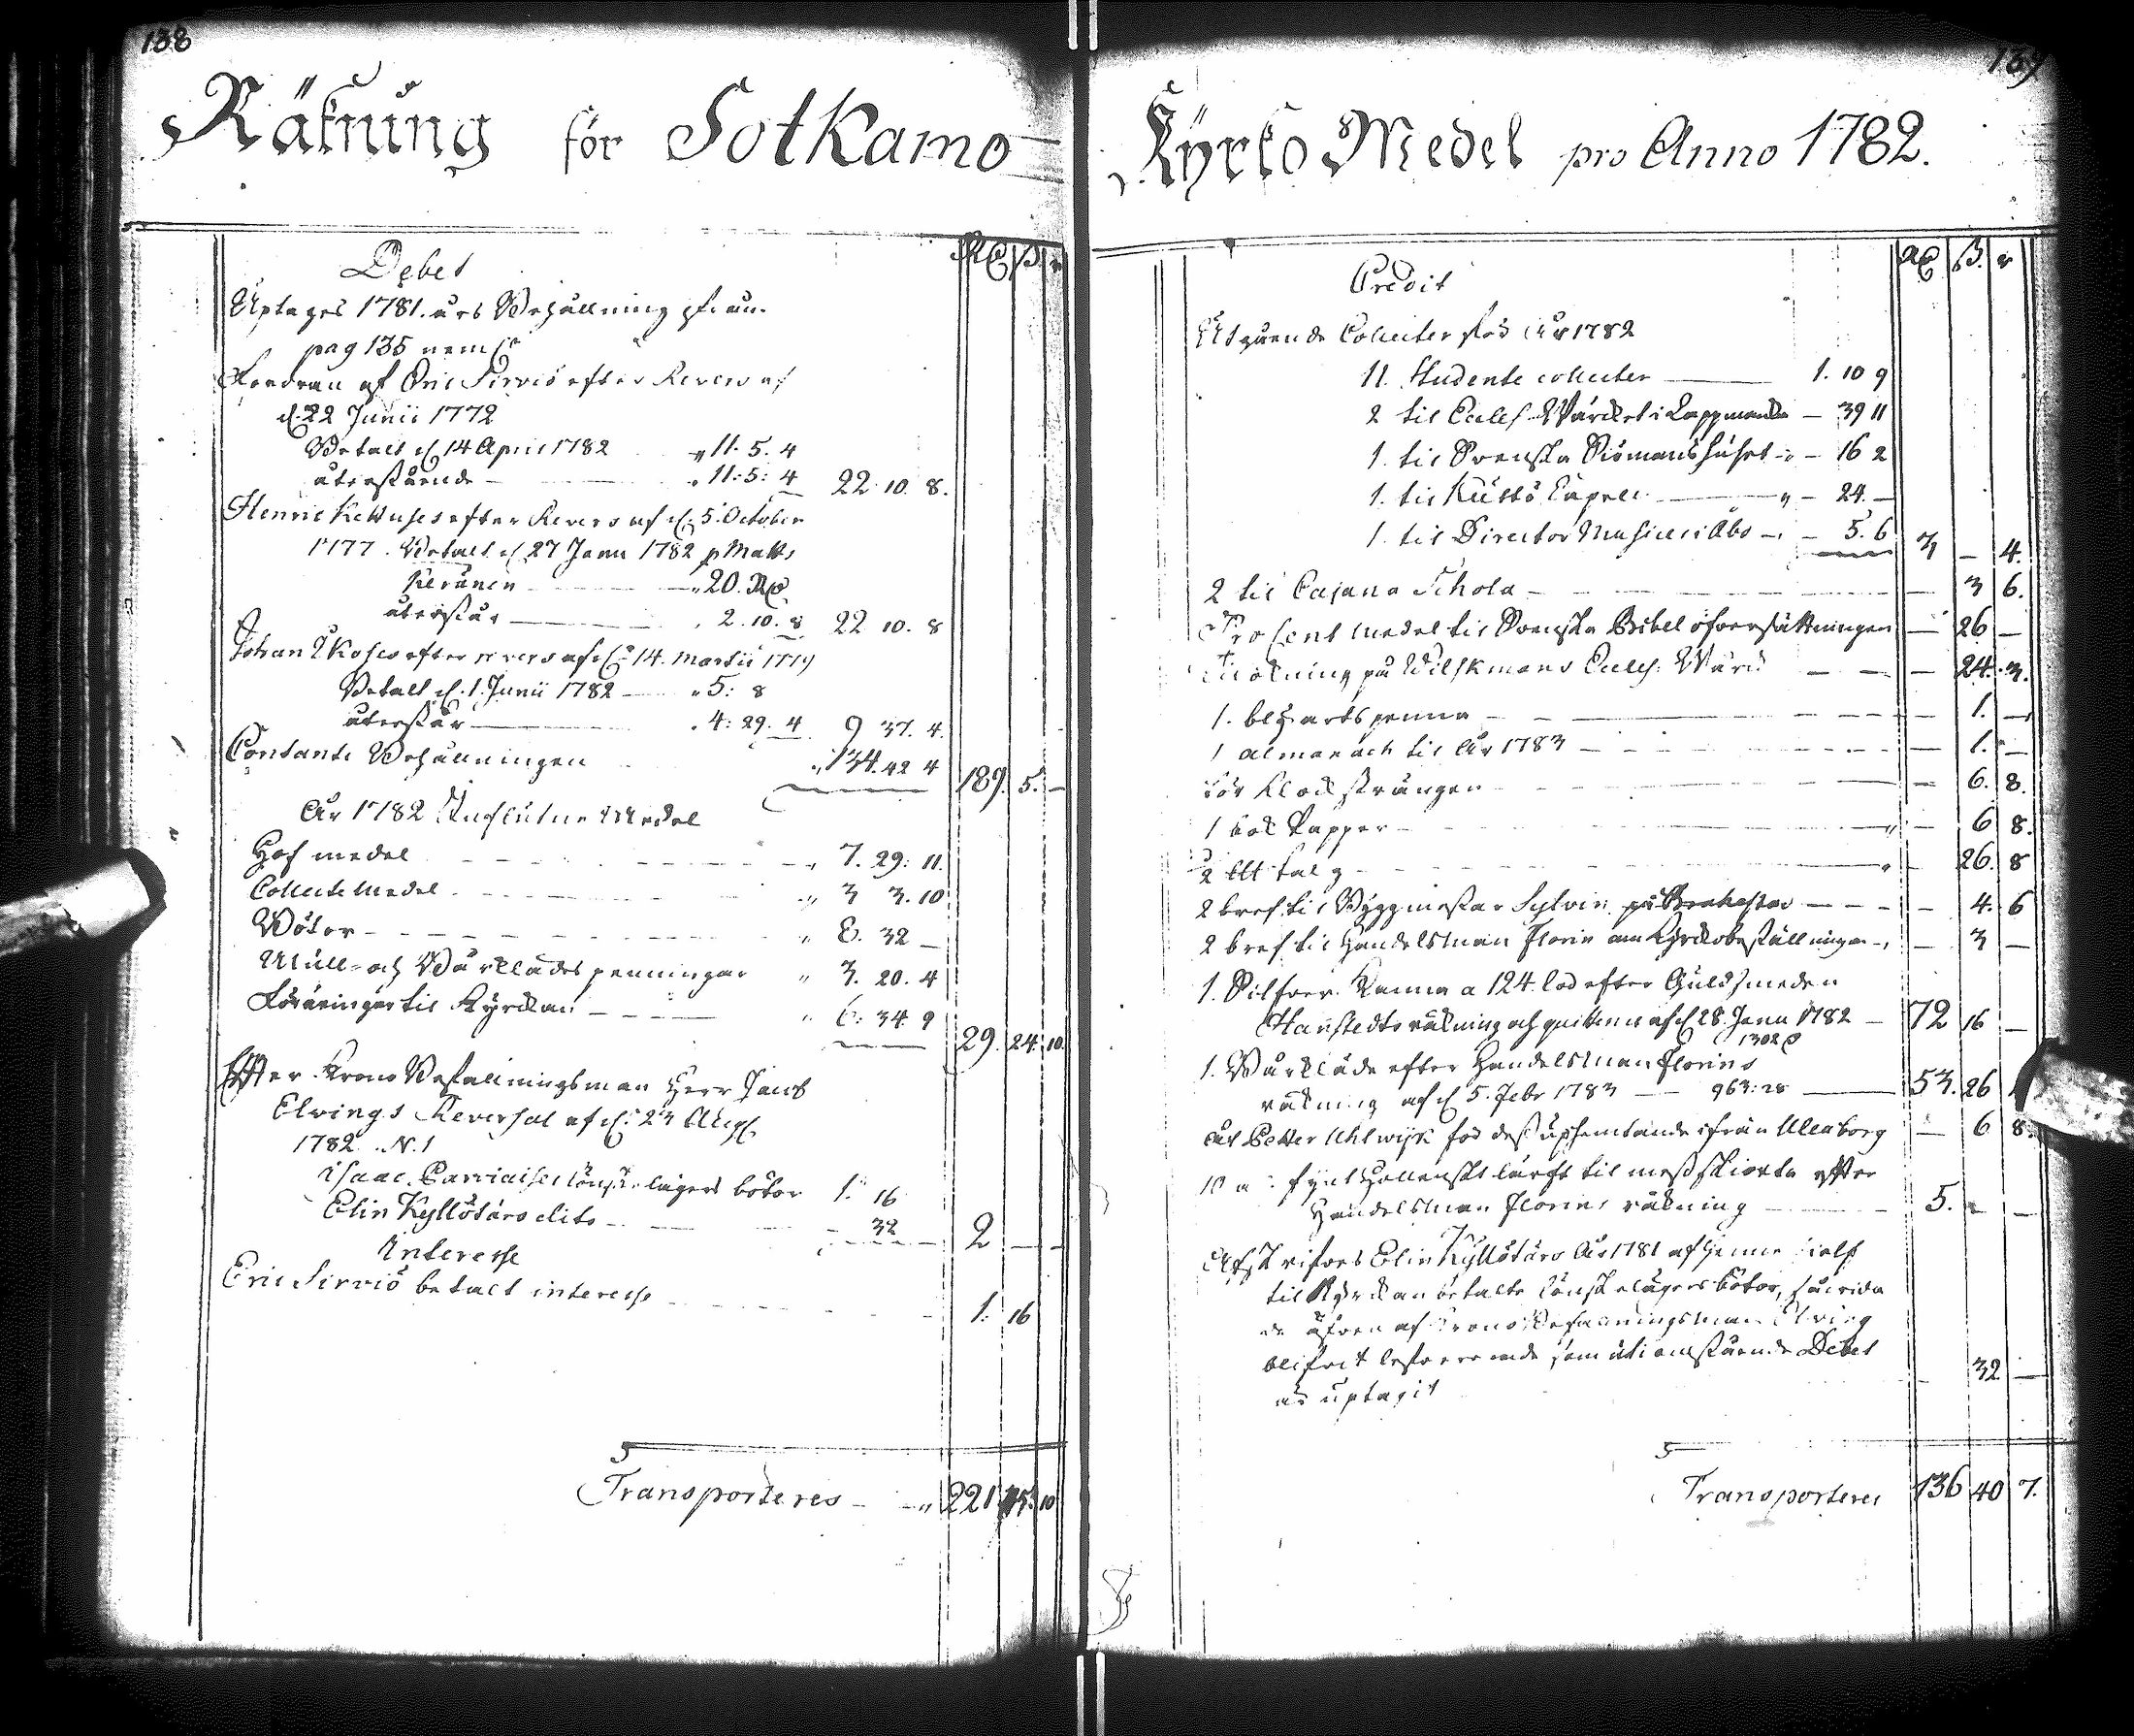 138
Räkning för Sotkamo
Debet
Rd ß. r
Uptages 1781. års Behållning ifrån
pag 135 neml:
Fordran af Eric Sirviö efter Revers af
d. 22 Junii 1772
Betalt d. 14 April 1782 " 11. 5. 4
återstående " 11: 5: 4 22. 10. 8.
Henric Kettuses efter Revers af d. 5. October
1777. Betalt d. 27 Janu 1782 p Matts
Keränen " 20. Rd
återstår " 2. 10. 8 22 10. 8
Johan efter revers af d. 14. Martii
Betalt d. 1. Junii 1782 " 5: 8
återstår " 4: 29. 4 9 37. 4.
Contante Behållningen " 134. 42 4
189. 5. —
År 1782 Influtne Medel
Håf medel " 7. 29: 11.
Collecte Medel " 3 3. 10
Böter " 8. 32 —
Mull- och Bårklädes penningar " 3. 20. 4
Föräringar til Kyrckan " 6: 34. 9
29. 24. 10.
Efter Krono Befallningsman Herr Jacob
Elvings Reversal af d. 23 Aug.
1782. N. 1
Isaac Parviaises lönskelägers böter 1. 16
Elin Kyllötärs dito — 32
2 — —
Interesse
Eric Sirviö betalt interesse
1. 16
Transporteres " 221 15. 10
139
Kyrko Medel pro Anno 1782.
Credit
Rd ß. r
Utgående Collecter för År 1782
11. Studente collecter 1. 10 9
2 til Eccles. Wärcket i Lappmarken — 39 11
1. til Svenska Siömanshuset — 16 2
1. til Kustö Capell " — 24. —
1. til Director Musices i Åbo — 5. 6
3 — 4.
2 til Cajana Schola — 3 6.
Procent medel til Svenska Bibel öfversättningen — 26 —
Tilökning på Wilskmans Eccles. Wärck — 24. 3.
1. blyartspenna — 1. —
1 almanach til År 1783 — 1. —
för Klockstrången — 6. 8.
1 bok Papper — 6 8.
2 ℔ talg — 26. 8
2 bref til Byggmästar Sylvin på Brahestad — 4. 6
2 bref til Handelsman Florin om Kyrckobeställningar — 3 —
1. Silfver Kanna a 124. lod efter Guldsmeden
Hanstedts räkning och quittence af d. 28. Janu 1782 — 72 16 —
1. Bårkläde efter Handelsman Florins
räkning af d. 5. Febr 1783 963: 28 53. 26
åt Petter Uhlwijk för dess uphemtande ifrån Uleåborg — 6 8.
10 al: fynt Hollenskt lärft til messskiorta efter
Handelsman Florins räkning 5. — —
Afskrifves Elin Kyllötärs År 1781 af henne sielf
til Kyrckan betalte lönskelägers böter, såvida
de äfven af Krono Befallningsman Elving
blifvit levererade som uti omstående Debet
är uptagit 32 —
Transporteres 136 40 7.